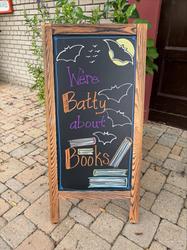 We're
Batty
about
Books